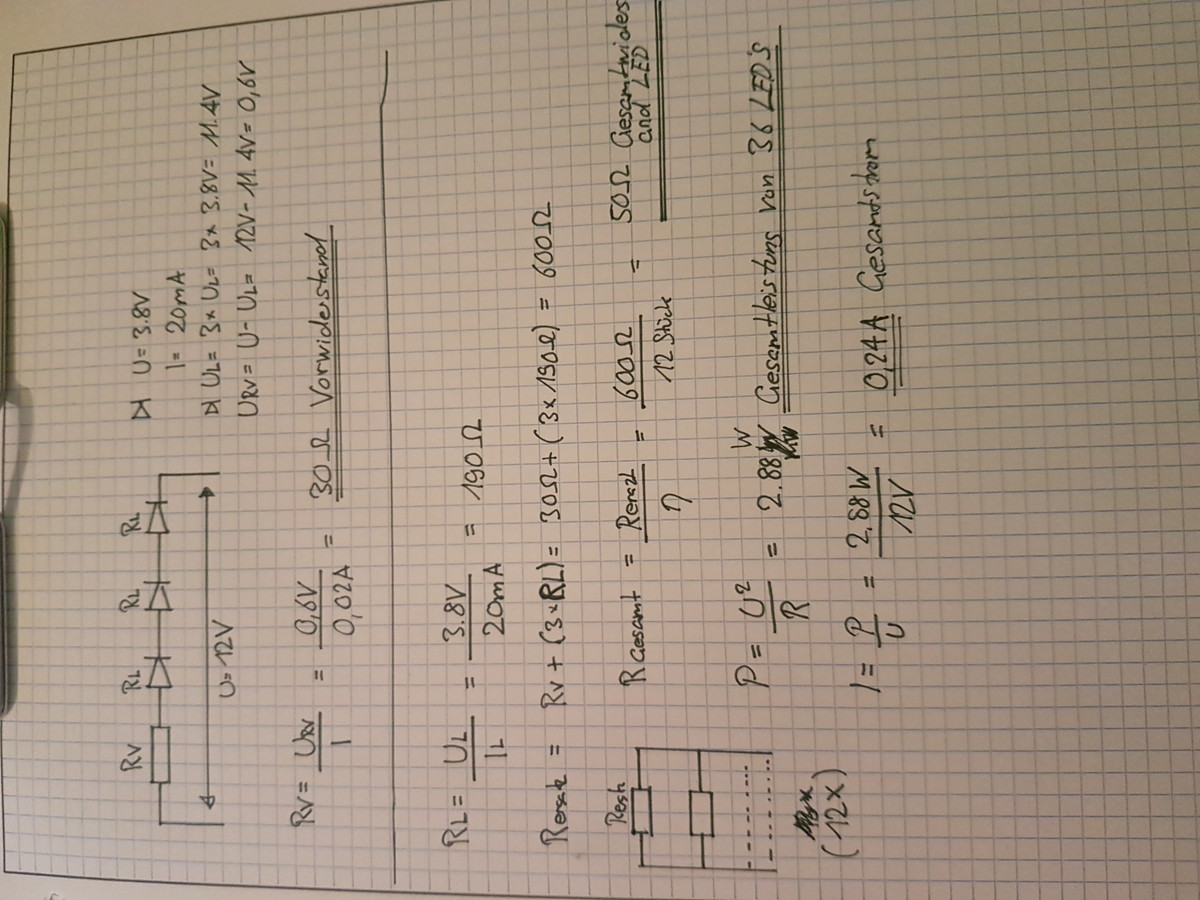 RV RL RL RL
U = 12V
U = 3.8V
I = 20mA
UL = 3 × UL = 3 × 3.8V = 11.4V
URV = U - UL = 12V - 11.4V = 0,6V
RV = URV / I = 0,6V / 0,02A = 30Ω Vorwiderstand
RL = UL / IL = 3.8V / 20mA = 190Ω
Rersatz = RV + (3 × RL) = 30Ω + (3 × 190Ω) = 600Ω
RGesamt = Rersatz / n = 600Ω / 12 Stück = 50Ω Gesamtwiderst
and LED
P = U² / R = 2.88 W Gesamtleistung von 36 LED's
(12x)
I = P / U = 2,88W / 12V = 0,24A Gesamtstrom